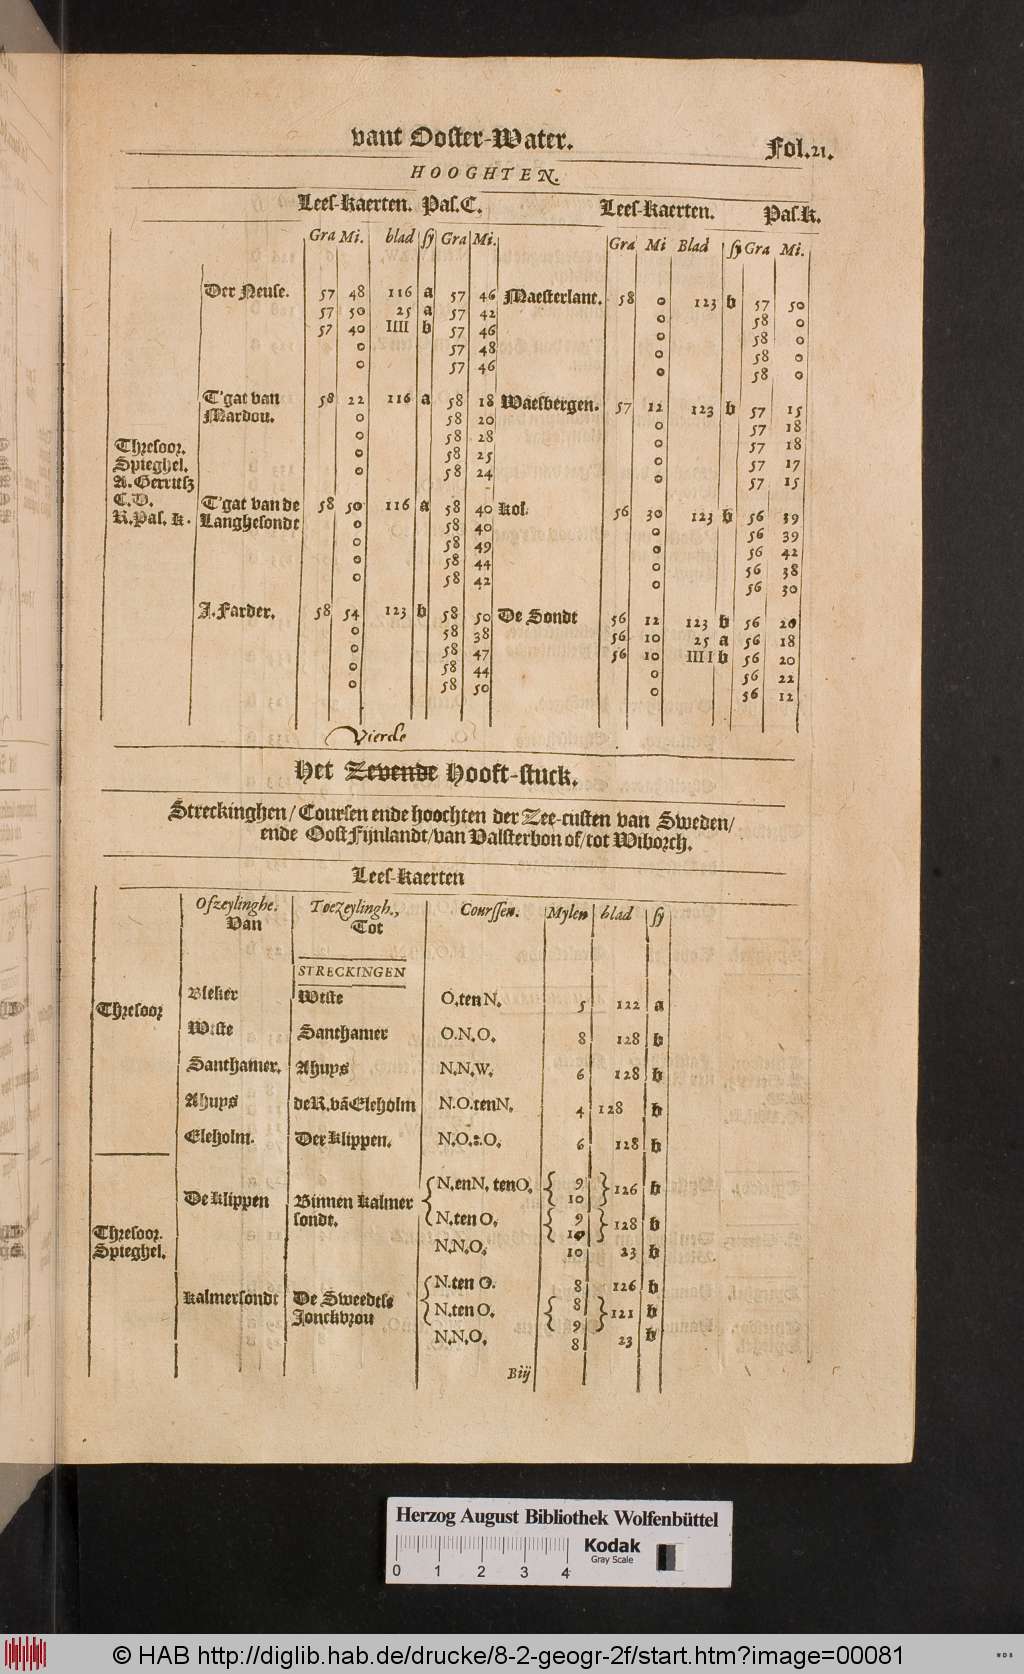 vant Ooster-Water. Fol.21.
HOOGHTEN.
Lees-kaerten. Pas.C. Lees-kaerten. Pas.k.
Gra Mi. blad sy Gra Mi. Gra Mi Blad sy Gra Mi.
Der Neuse. 57 48 116 a 57 46 Maesterlant. 58 0 123 b 57 50
57 50 25 a 57 42 0 58 0
57 40 IIII b 57 46 0 58 0
0 57 48 0 58 0
0 57 46 0 58 0
T'gat van 58 22 116 a 58 18 Waesbergen. 57 12 123 b 57 15
Mardou. 0 58 20 0 57 18
0 58 28 0 57 18
Thresoor. 0 58 25 0 57 17
Spieghel. 0 58 24 0 57 15
A. Gerritsz
C.D. T'gat van de 58 50 116 a 58 40 kol. 56 30 123 b 56 39
R.Pas. k. Langhesondt 0 58 40 0 56 39
0 58 49 0 56 42
0 58 44 0 56 38
0 58 42 0 56 30
J. Farder. 58 54 123 b 58 50 De Sondt 56 12 123 b 56 20
0 58 38 56 10 25 a 56 18
0 58 47 56 10 IIII b 56 20
0 58 44 0 56 22
0 58 50 0 56 12
Vierde
Het Zevende Hooft-stuck.
Streckinghen/ Coursen ende hoochten der Zee-custen van Sweden/
ende Oost Fijnlandt/van Valsterbon of/tot Wiborch.
Lees-kaerten
Ofzeylinghe. Toezeylingh., Courssen. Mylen blad sy
Van Tot
STRECKINGEN
Thresoor Bleker Weste O.ten N. 5 122 a
Weste Santhamer O.N.O. 8 128 b
Santhamer. Ahuys N.N.W. 6 128 b
Ahuys de R. vā Elcholm N.O.tenN. 4 128 b
Elcholm. Der klippen. N.O.t.O. 6 128 b
De klippen Binnen kalmer { N.enN. tenO. { 9 } 126 b
10
sondt. N.ten O. { 9 } 128 b
10
Thresoor. N.N.O. 10 23 b
Spieghel.
kalmersondt De Sweedtse { N.ten O. 8 126 b
Jonckvrou N.ten O. { 8 } 121 b
9
N.N.O. 8 23 b
Biij
Herzog August Bibliothek Wolfenbüttel
Kodak
Gray Scale
0 1 2 3 4
© HAB http://diglib.hab.de/drucke/8-2-geogr-2f/start.htm?image=00081